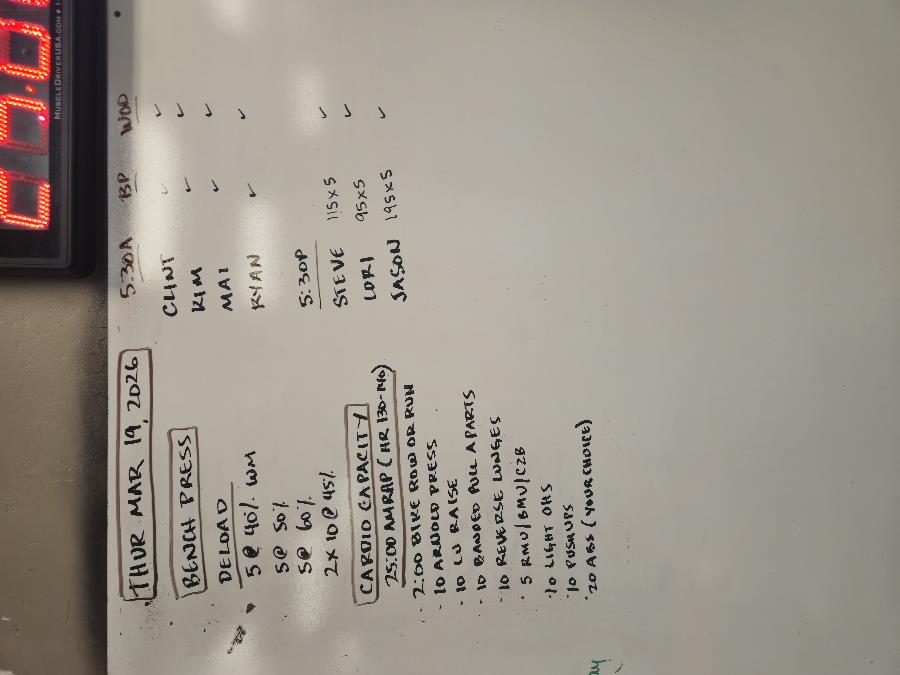 THUR MAR 19, 2026
BENCH PRESS
DELOAD
5 @ 40% WM
5 @ 50%
5 @ 60%
2 x 10 @ 45%
CARDIO CAPACITY
25:00 AMRAP (HR 130-140)
· 2:00 BIKE ROW OR RUN
· 10 ARNOLD PRESS
· 10 LU RAISE
· 10 BANDED PULL APARTS
· 10 REVERSE LUNGES
· 5 RMU/BMU/C2B
· 10 LIGHT OHS
· 10 PUSHUPS
· 20 ABS (YOUR CHOICE)
5:30A BP WOD
CLINT ✓ ✓
KIM ✓ ✓
MAI ✓ ✓
RYAN ✓ ✓
5:30P
STEVE 115x5 ✓
LORI 95x5 ✓
JASON 195x5 ✓
MUSCLEDRIVERUSA.COM